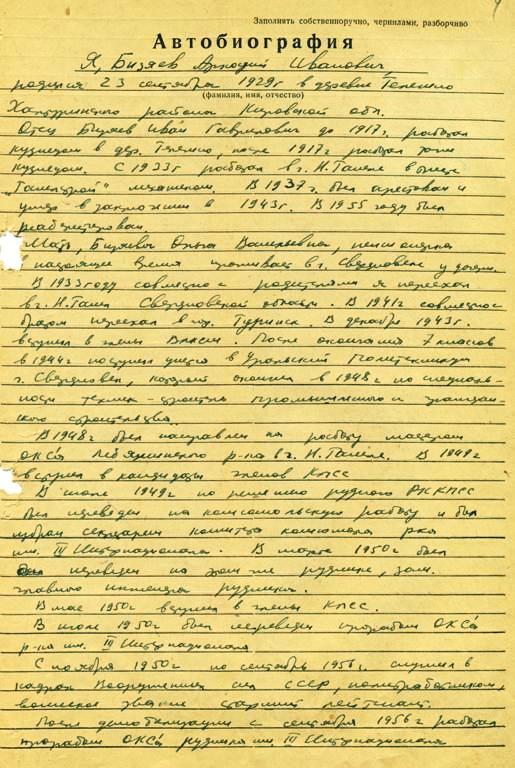 Заполнять собственноручно, чернилами, разборчиво
Автобиография
Я, Бизяев Аркадий Иванович,
родился 23 сентября 1929г в деревне
(фамилия, имя, отчество)
Халтуринского района Кировской обл.
Отец Бизяев Иван Гаврилович до 1917г. работал
кузнецом в дер. после 1917г работал
кузнецом. С 1933г работал в г. Н. Тагиле в
механиком. В 1937г. был арестован и
умер в заключении в 1943г. В 1955 году был
реабилитирован.
Мать, Бизяева Ольга Васильевна, пенсионерка
в настоящее время проживает в г. Свердловске у дочери.
В 1933 году совместно с родителями я переехал
в г. Н. Тагил Свердловской области. В 1941г совместно с
братом переехал в гор. Туринск. В декабре 1943г.
вступил в члены ВЛКСМ. После окончания 7 классов
в 1944г поступил учится в Уральский Политехникум
г. Свердловск, который окончил в 1948г по специаль-
ности техник-строитель промышленного и граждан-
ского строительства.
В 1948г был направлен на работу мастером
ОКСа Лебяжинского р-ка в г. Н. Тагиле. В 1949г
вступил в кандидаты членов КПСС
В июле 1949г по решению РК КПСС
был переведен на комсомольскую работу и был
избран секретарем комитета комсомола р-ка
им. III Интернационала. В марте 1950г был
переведен на этом же руднике, зам.
главного инженера рудника.
В мае 1950г вступил в члены КПСС.
В июле 1950г был переведен прорабом ОКСа
р-ка им. III Интернационала
С ноября 1950г по сентябрь 1956г. служил в
кадрах Вооруженных сил СССР, политработником,
воинское звание старший лейтенант.
После демобилизации с сентября 1956г работал
прорабом ОКСа рудника им. III Интернационала